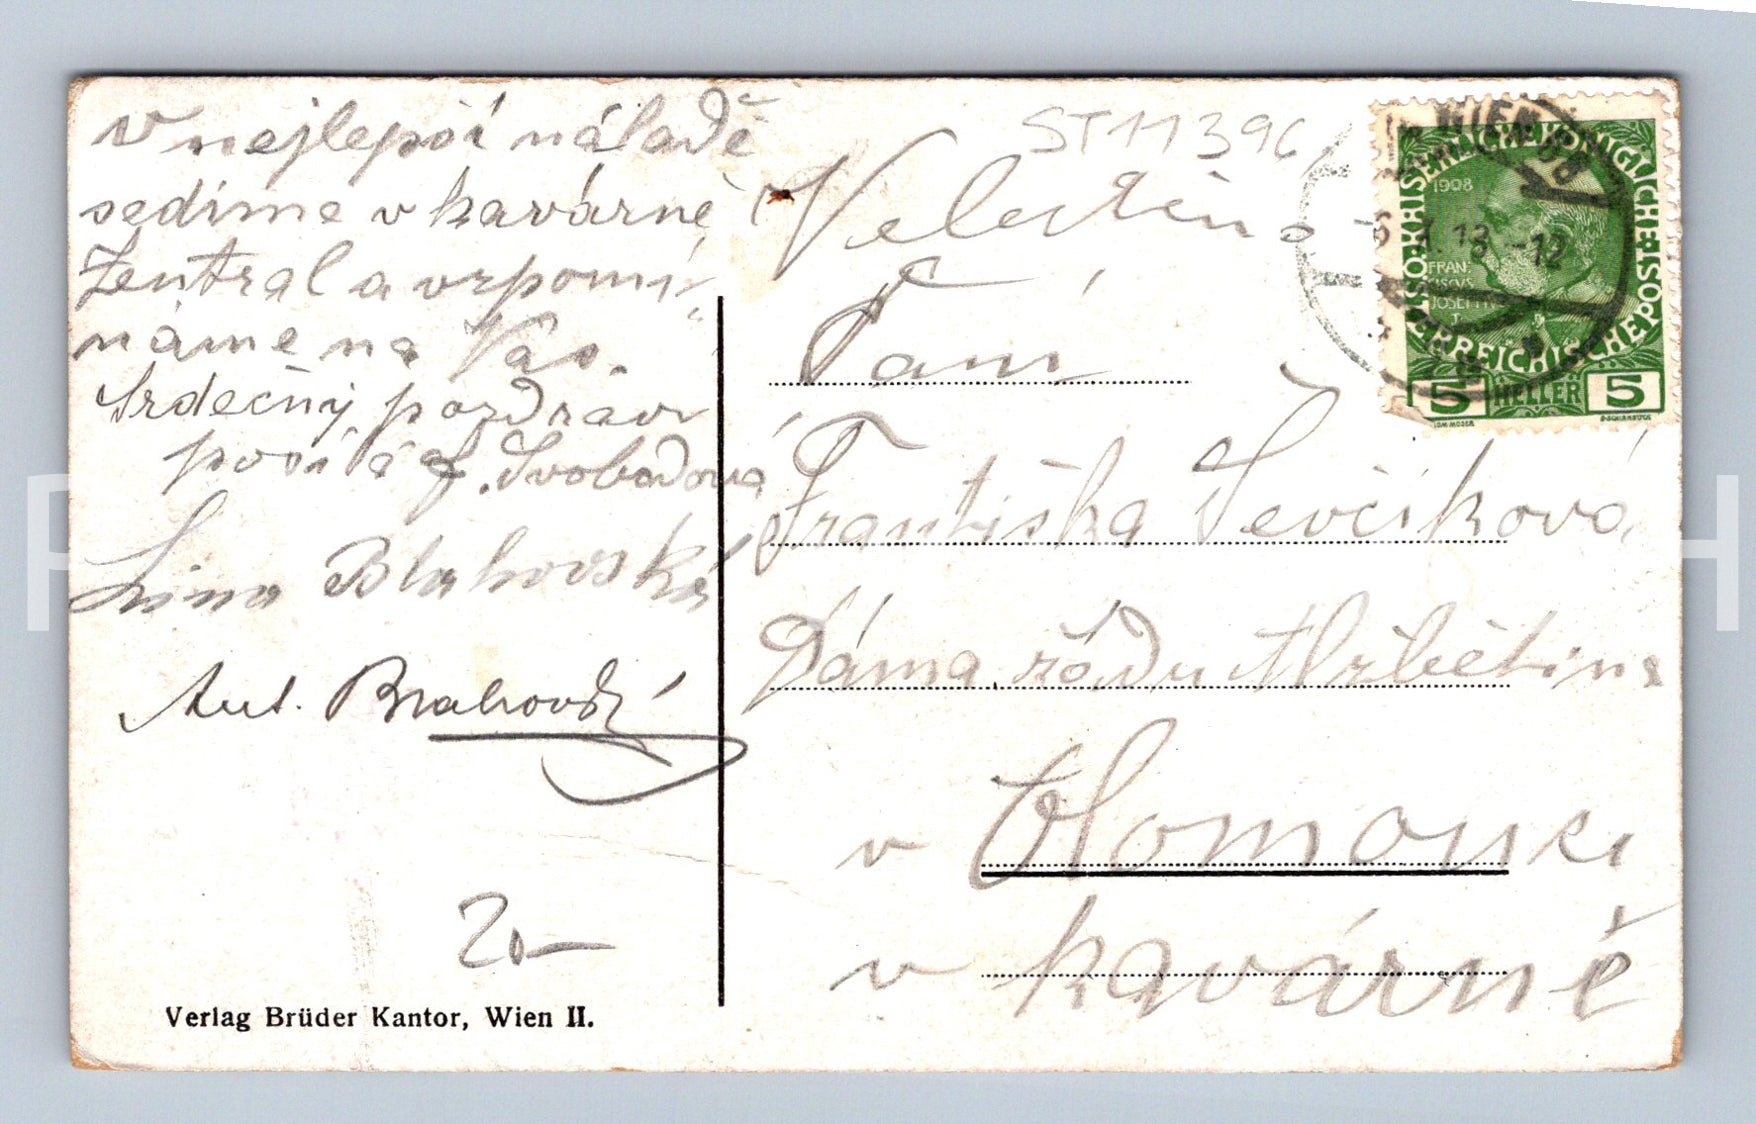 V nejlepší náladě
sedíme v kavárně
Zentral a vzpomí„
náme na Vás.
Srdečný pozdrav
posílá F. Svobodova
Lina Blahovská
Ant. Blahovský
20—
Verlag Brüder Kantor, Wien II.
ST11396
Velectěna
Paní
Františka Ševčíková
Dáma řádu Alžbětina
v Olomouci
v kavárně
WIEN
6 X 13 -12
KAISERLICHE KÖNIGLICHE
ÖSTERREICHISCHE POST
1908
FRAN
CISCVS
JOSEPHVS
I.
5 HELLER 5
P H